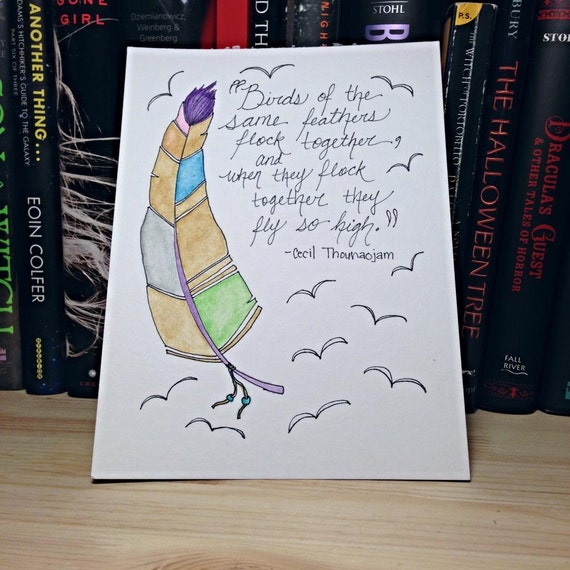 "Birds of the
same feathers
flock together,
and
when they flock
together they
fly so high."
-Cecil Thounaojam
GONE GIRL
ADAMS'S HITCHHIKER'S GUIDE TO THE GALAXY
PART SIX OF THREE
AND ANOTHER THING...
EOIN COLFER
Dziemianowicz,
Weinberg &
Greenberg
STOHL
STOHL
P.S.
THE WITCH OF PORTOBELLO
BRADBURY
THE HALLOWEEN TREE
DRACULA'S GUEST
& OTHER TALES OF HORROR
FALL
RIVER